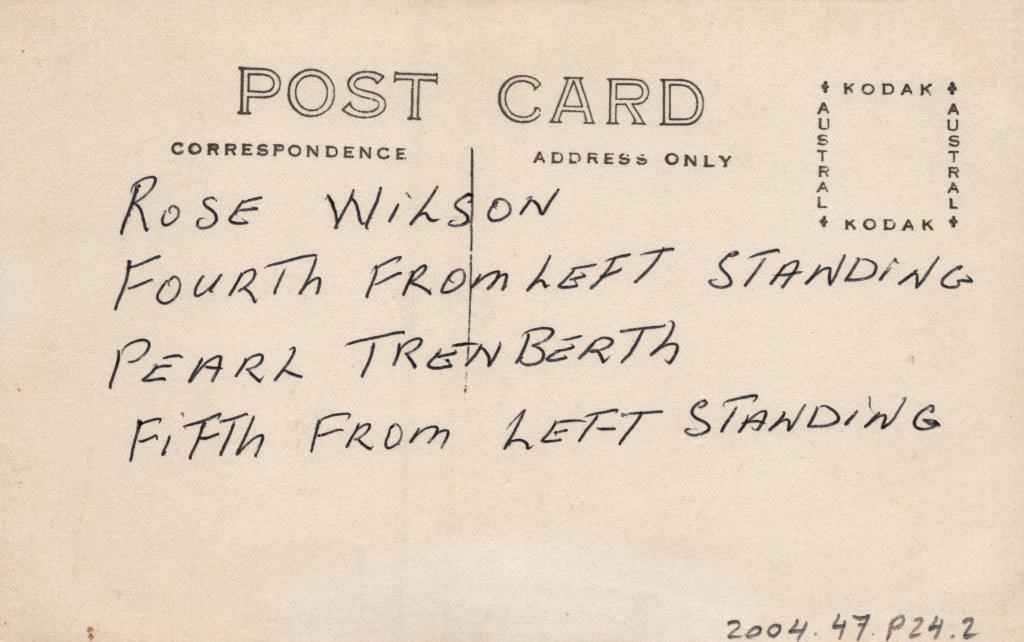 POST CARD
CORRESPONDENCE
ADDRESS ONLY
KODAK
AUSTRAL
AUSTRAL
KODAK
ROSE WILSON
FOURTH FROM LEFT STANDING
PEARL TRENBERTH
FIFTH FROM LEFT STANDING
2004.47.P24.2